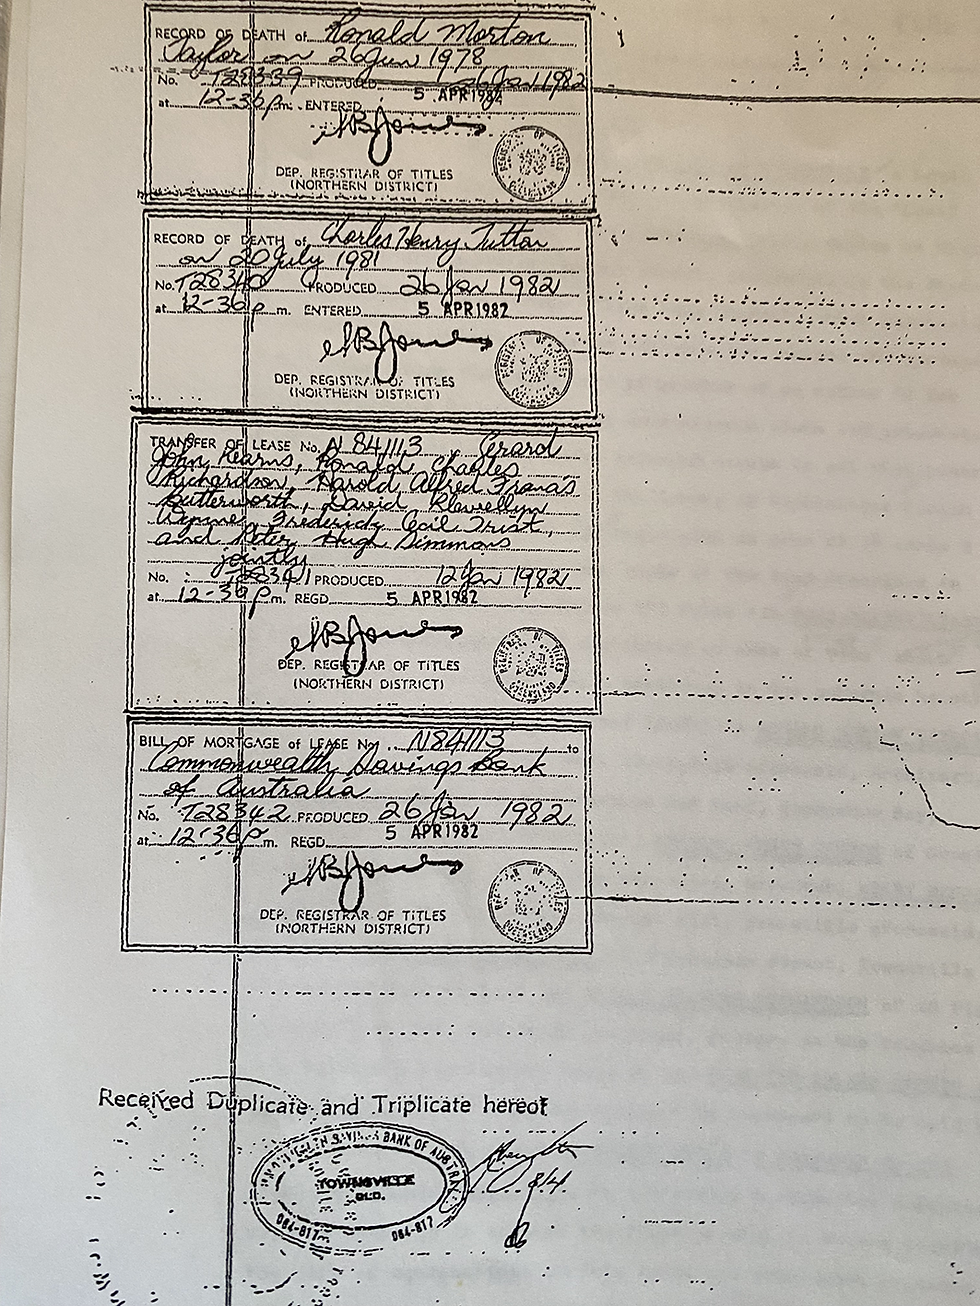 RECORD OF DEATH of Ronald Morton
Taylor on 26 Jun 1978
No. T28339 PRODUCED 26 Jan 1982
at 12-36 p.m. ENTERED 5 APR 1982
DEP. REGISTRAR OF TITLES
(NORTHERN DISTRICT)
RECORD OF DEATH of Charles Henry Tutton
on 20 July 1981
No. T28340 PRODUCED 26 Jan 1982
at 12-36 p.m. ENTERED 5 APR 1982
DEP. REGISTRAR OF TITLES
(NORTHERN DISTRICT)
TRANSFER OF LEASE No. N 841113 Gerard
John Kearns, Ronald Charles
Richardson, Harold Alfred Francis
Butterworth, David Llewellyn
Wynne, Frederick Cecil Trist,
and Peter Hugh Simmons
jointly
No. T28341 PRODUCED 12 Jan 1982
at 12-36 p.m. REGD 5 APR 1982
DEP. REGISTRAR OF TITLES
(NORTHERN DISTRICT)
BILL OF MORTGAGE of LEASE No. N841113 to
Commonwealth Savings Bank
of Australia
No. T28342 PRODUCED 26 Jan 1982
at 12-36 p.m. REGD 5 APR 1982
DEP. REGISTRAR OF TITLES
(NORTHERN DISTRICT)
Received Duplicate and Triplicate hereof
COMMONWEALTH SAVINGS BANK OF AUSTRALIA
TOWNSVILLE
QLD.
064-817 064-817
8/4